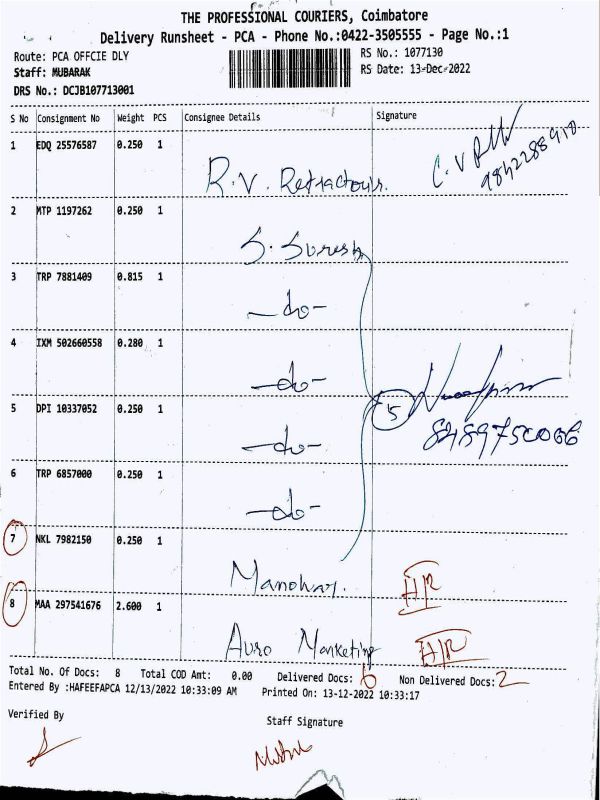 THE PROFESSIONAL COURIERS, Coimbatore
Delivery Runsheet - PCA - Phone No.:0422-3505555 - Page No.:1
Route: PCA OFFCIE DLY
RS No.: 1077130
Staff: MUBARAK
RS Date: 13-Dec-2022
DRS No.: DCJB107713001
S No Consignment No Weight PCS Consignee Details Signature
1 EDQ 25576587 0.250 1
R.V. Refractours. C.V
9842288910
2 MTP 1197262 0.250 1
S. Suresh
3 TRP 7881409 0.815 1
-do-
4 IXM 502660558 0.280 1
-do-
5 DPI 10337052 0.250 1 5
8489750066
-do-
6 TRP 6857000 0.250 1
-do-
7 NKL 7982150 0.250 1
Manohar. H/R
8 MAA 297541676 2.600 1
Auro Marketing H/R
Total No. Of Docs: 8 Total COD Amt: 0.00 Delivered Docs: 6 Non Delivered Docs: 2
Entered By :HAFEEFAPCA 12/13/2022 10:33:09 AM Printed On: 13-12-2022 10:33:17
Verified By Staff Signature